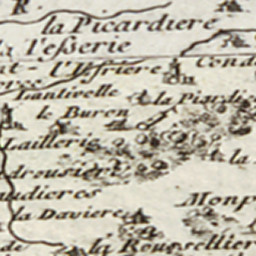 R.
la Picardiere
l'eßerie
l'Ysriere
Cond
Lantivelle
la Piardie
le Buron
Laillerie
la
drousiere
udieres
Monp
la Daviere
de
la Roussellier